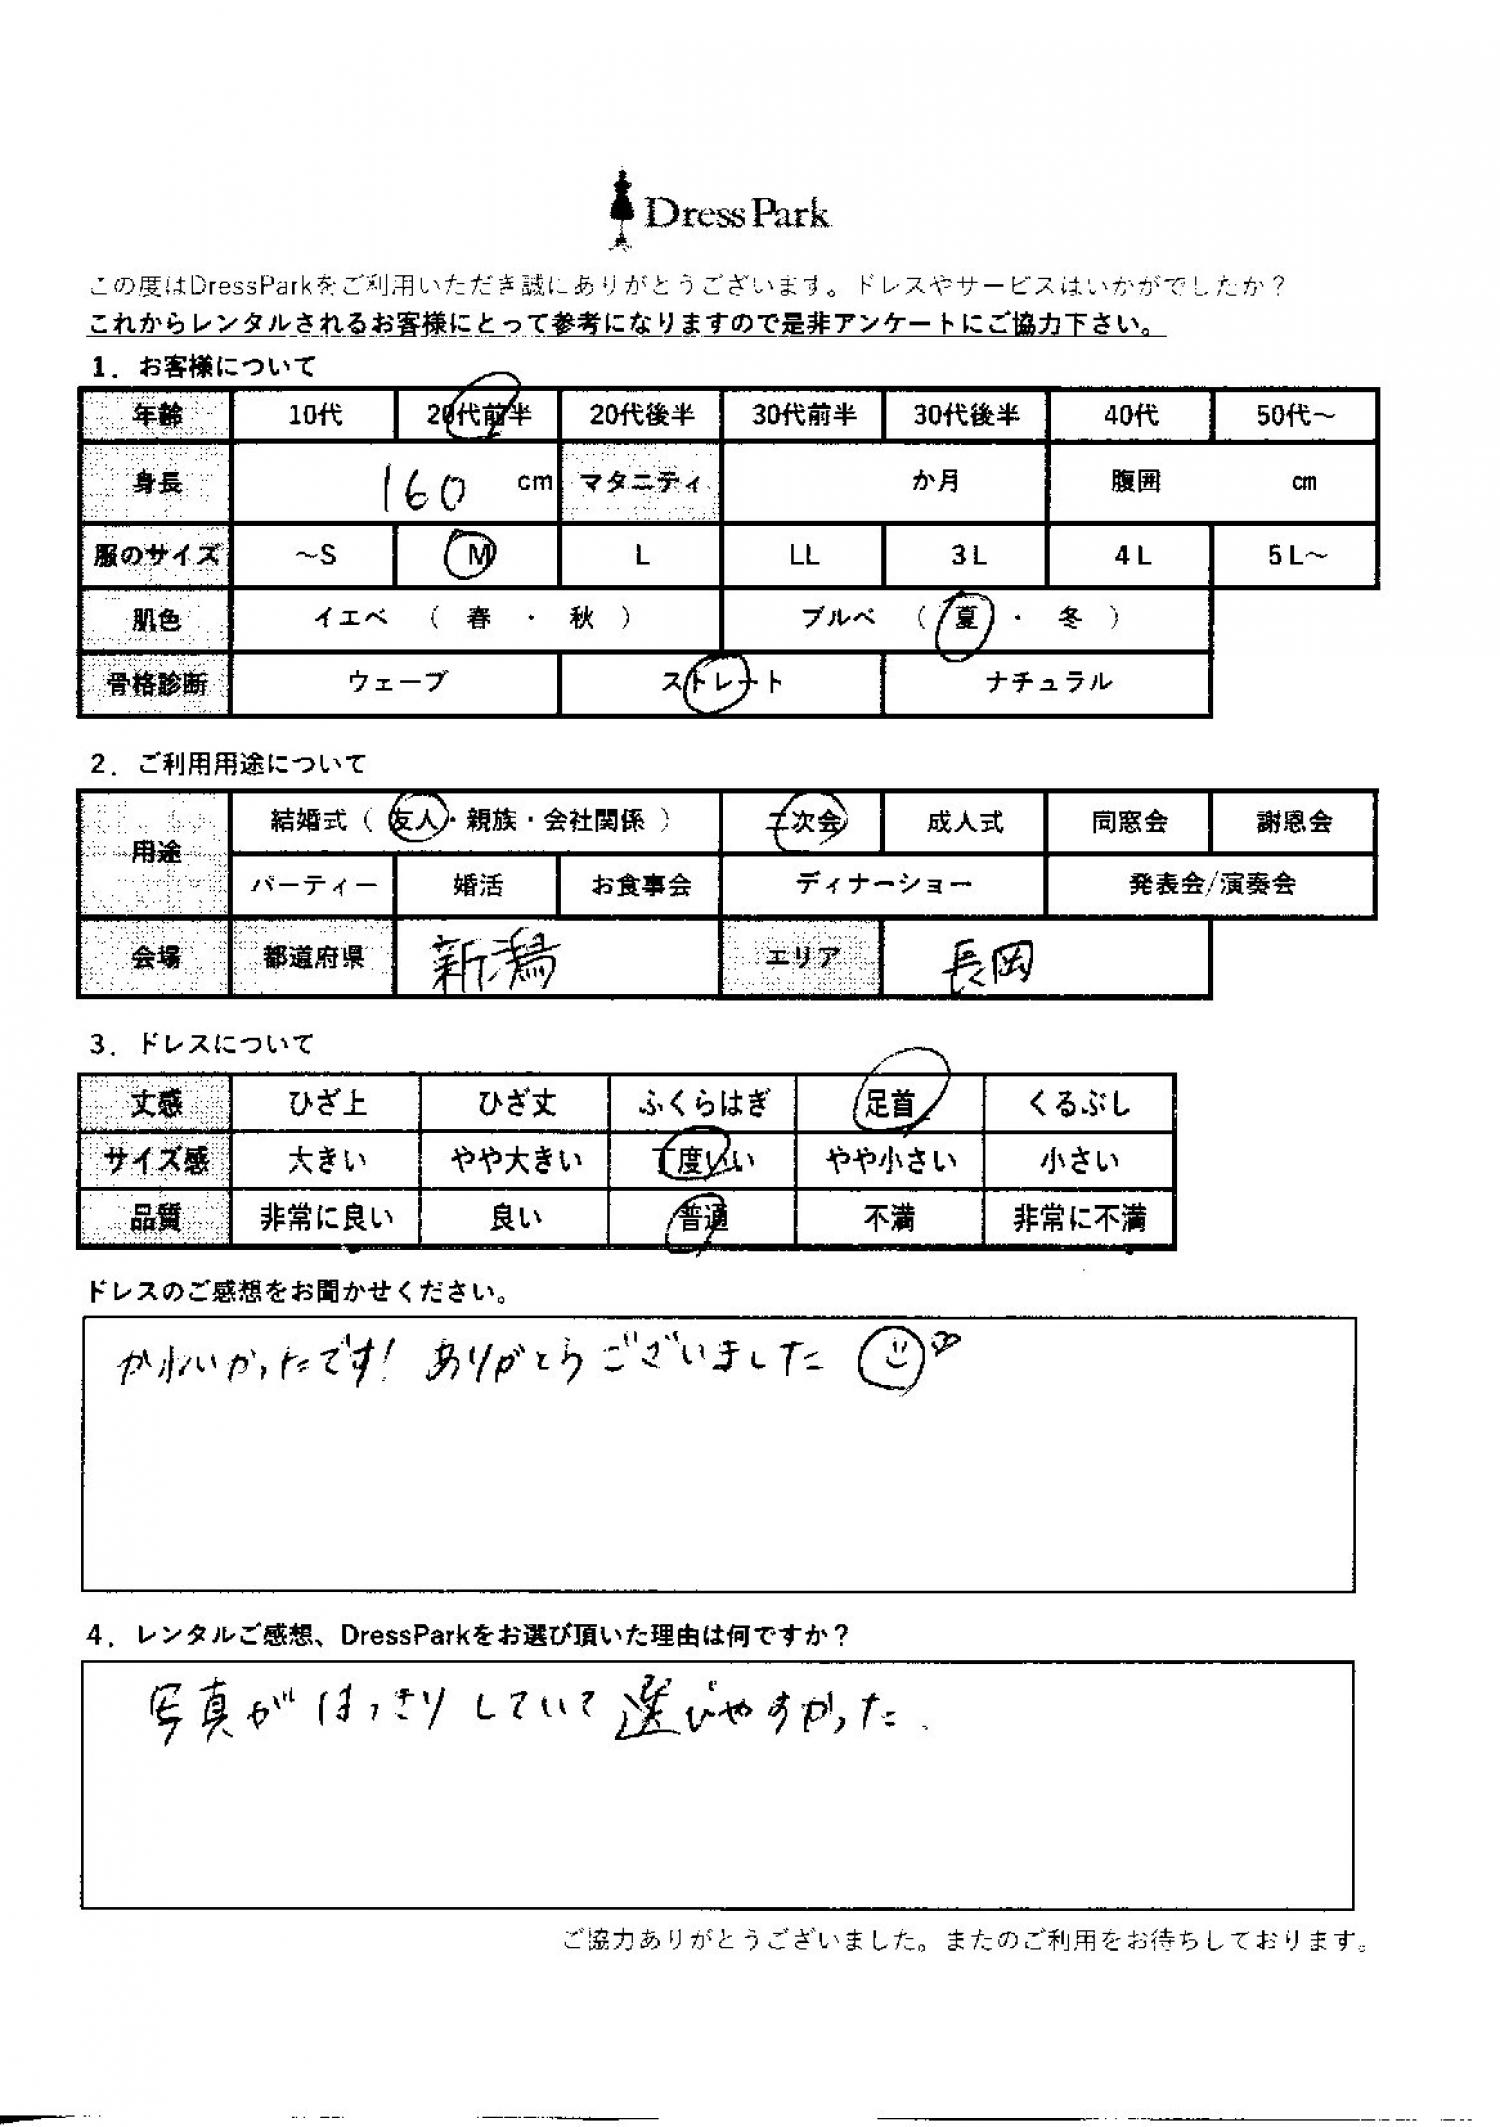 Dress Park
この度はDressParkをご利用いただき誠にありがとうございます。ドレスやサービスはいかがでしたか？
これからレンタルされるお客様にとって参考になりますので是非アンケートにご協力下さい。
1．お客様について
年齢 10代 20代前半 20代後半 30代前半 30代後半 40代 50代～
身長 160 cm マタニティ か月 腹囲 cm
服のサイズ ～S M L LL 3L 4L 5L～
肌色 イエベ （ 春 ・ 秋 ） ブルベ （ 夏 ・ 冬 ）
骨格診断 ウェーブ ストレート ナチュラル
2．ご利用用途について
用途 結婚式（ 友人・親族・会社関係 ） 二次会 成人式 同窓会 謝恩会
パーティー 婚活 お食事会 ディナーショー 発表会/演奏会
会場 都道府県 新潟 エリア 長岡
3．ドレスについて
丈感 ひざ上 ひざ丈 ふくらはぎ 足首 くるぶし
サイズ感 大きい やや大きい 丁度いい やや小さい 小さい
品質 非常に良い 良い 普通 不満 非常に不満
ドレスのご感想をお聞かせください。
かわいかったです! ありがとうございました
4．レンタルご感想、DressParkをお選び頂いた理由は何ですか？
写真がはっきりしていて選びやすかった.
ご協力ありがとうございました。またのご利用をお待ちしております。